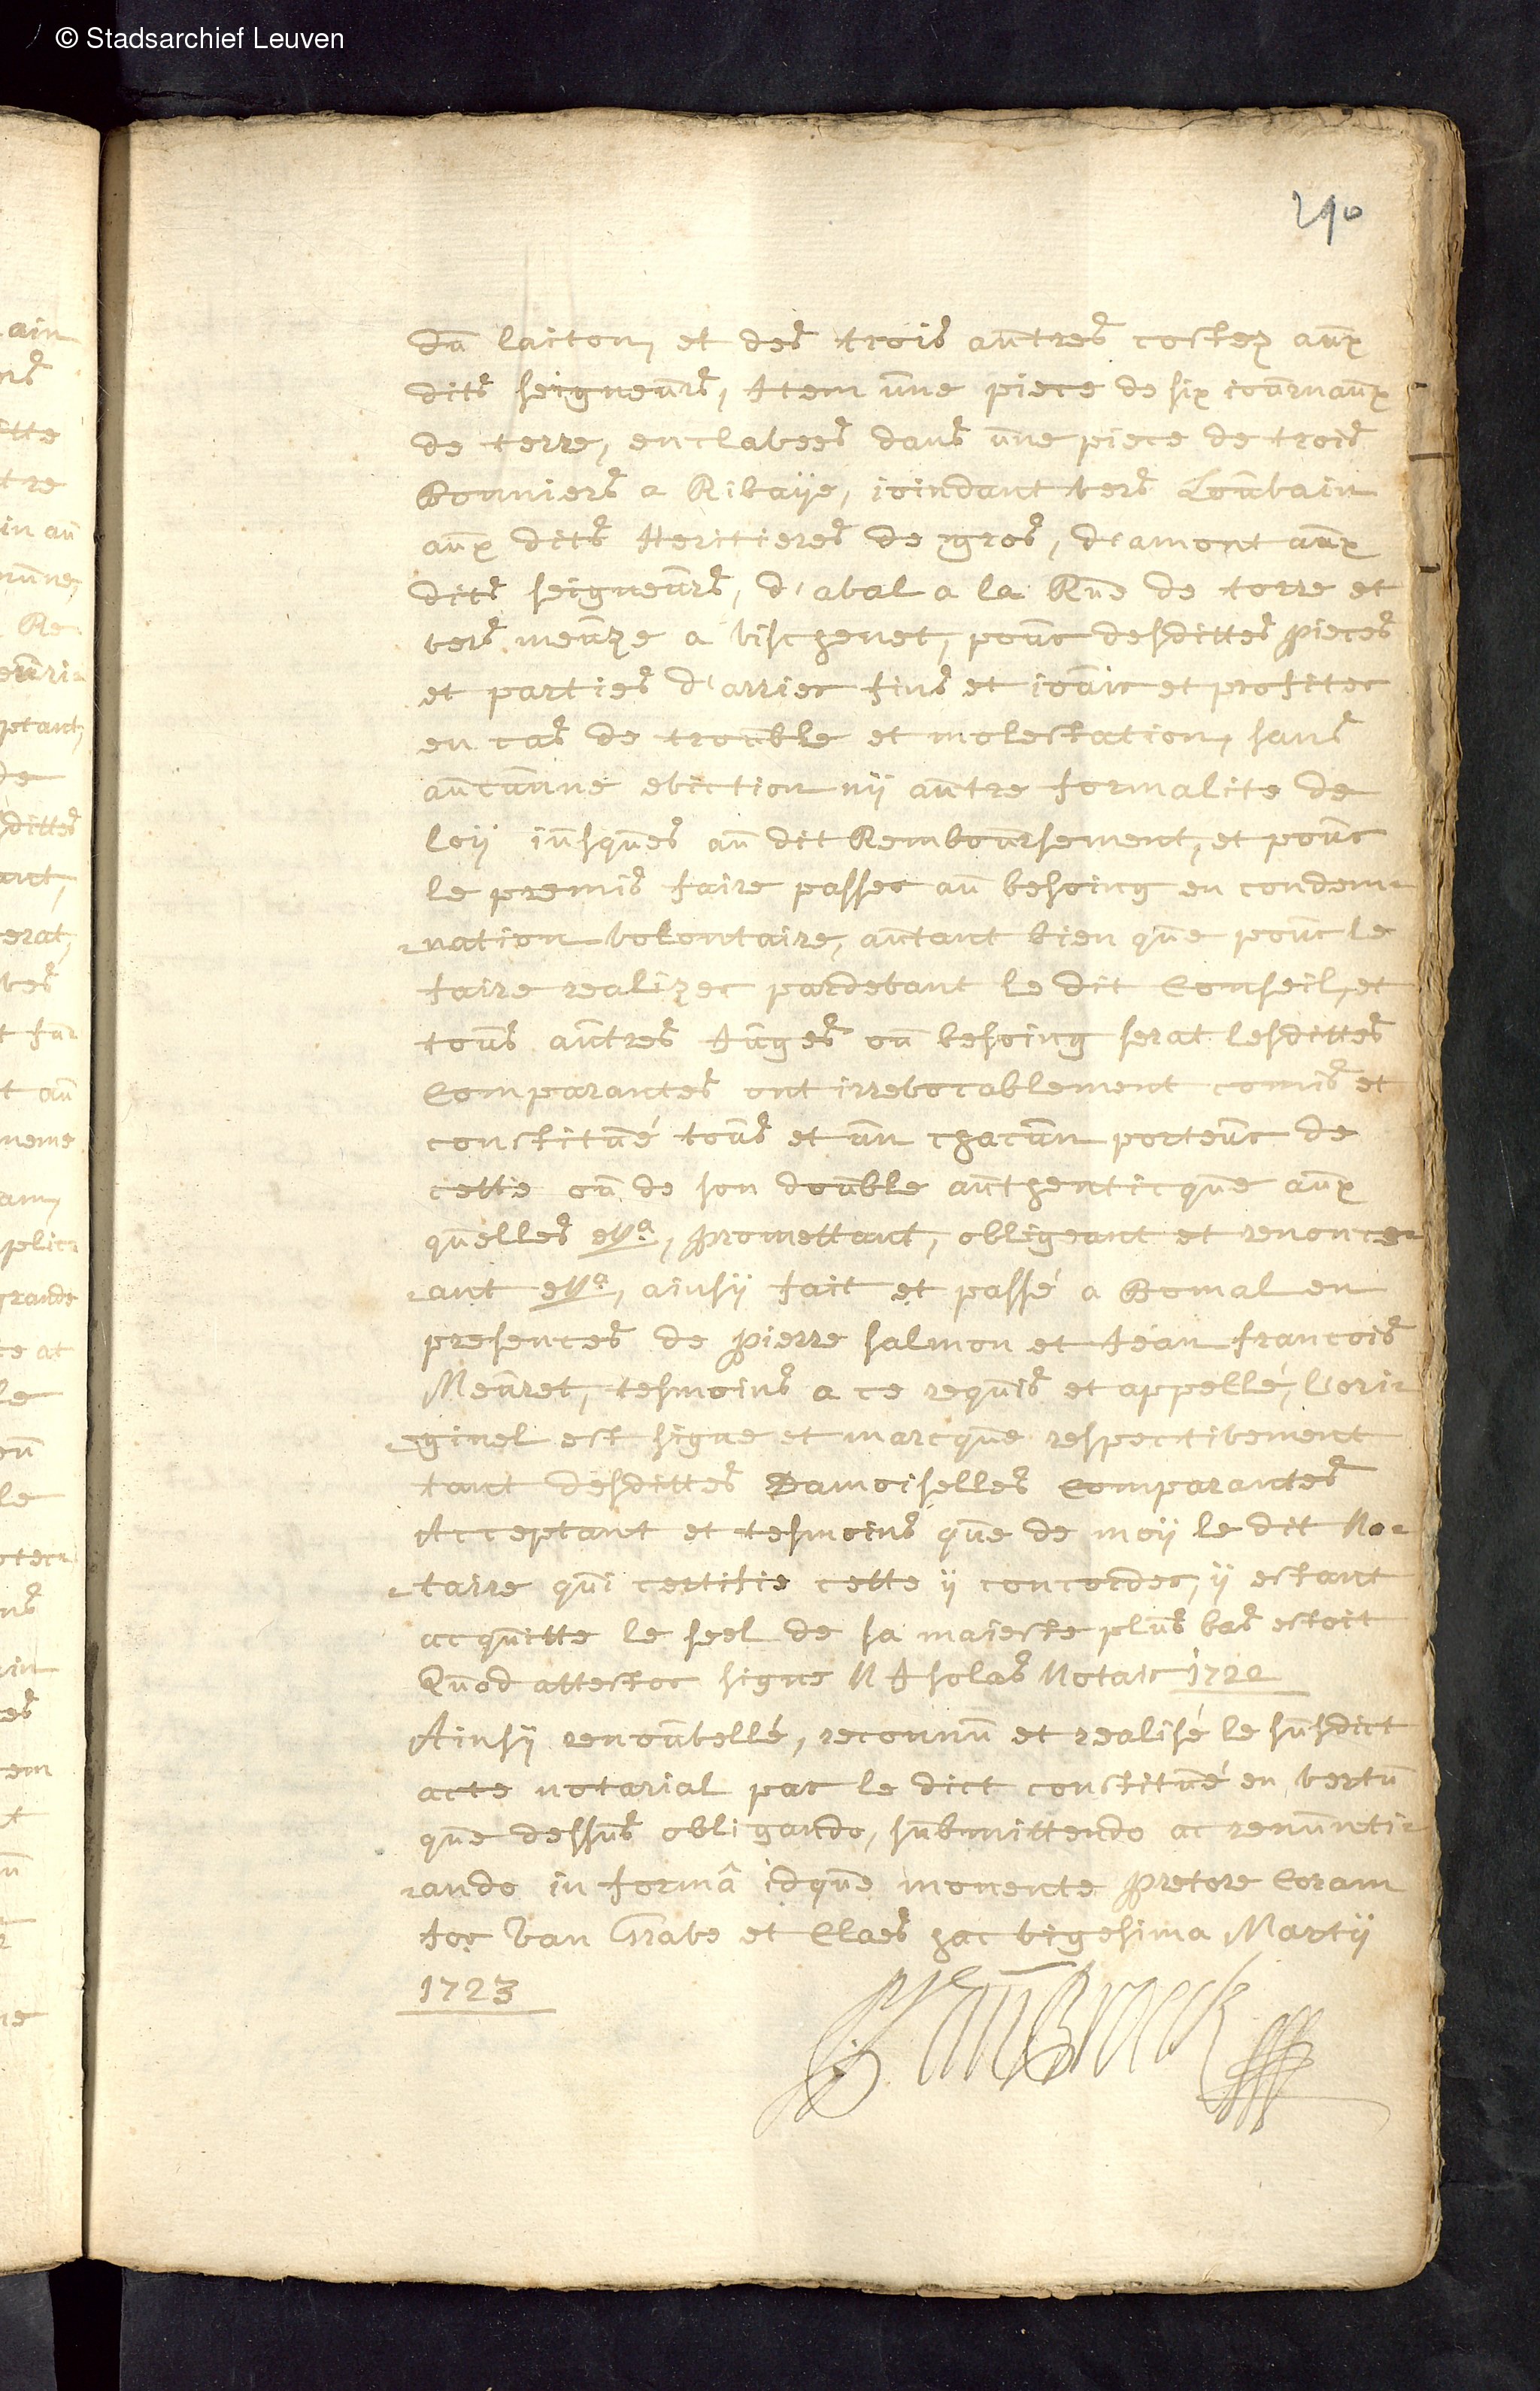 © Stadsarchief Leuven
290
du laiton, et des trois autres costez aux
dits seigneurs, Item une piece de six iournaux
de terre, enclavees dans une piece de trois
Bonniers a Ribaÿe, ioindant vers Louvain
aux dits Heritieres de gros, d'amont aux
dits seigneurs, d'aval a la Rue de torre et
vers meuze a vischenet, pour desdittes pieces
et parties d'arrier fins et iouir et profiter
en cas de trouble et molestation, sans
aucunne eviction nÿ autre formalite de
loÿ iusques au dit Remboursement, et pour
le premis faire passer au besoing en condem-
-nation volontaire, autant bien que pour le
faire realizer pardevant le dit Conseil, et
tous autres Juges ou besoing serat lesdittes
Comparantes ont irrevocablement comis et
constitué tous et un chacun porteur de
cette ou de son double authenticque aux
quelles etta, promettant, obligeant et renonce-
-ant etta, ainsÿ fait et passé a Bomal en
presences de pierre salmon et Jean francois
Meuret, tesmoins a ce requis et appellé, Lori-
-ginel est signe et marcque respectivement
tant desdittes Damoiselles Comparantes
Acceptant et tesmoins que de moÿ le dit No-
-taire qui certifie cette ÿ concorder, ÿ estant
acquitte le seel de sa maieste plus bas estoit
Quod attestor signe N J solas Notair 1722
Ainsÿ renouvellé, reconnu et realisé le susdict
acte notarial par le dict constitué en vertu
que dessus obligando, submittendo ac renunti-
-ando in formâ idque monente pretore Coram
Jor Van Grave et Claes hac vigesima Martÿ
1723
VanBroeck